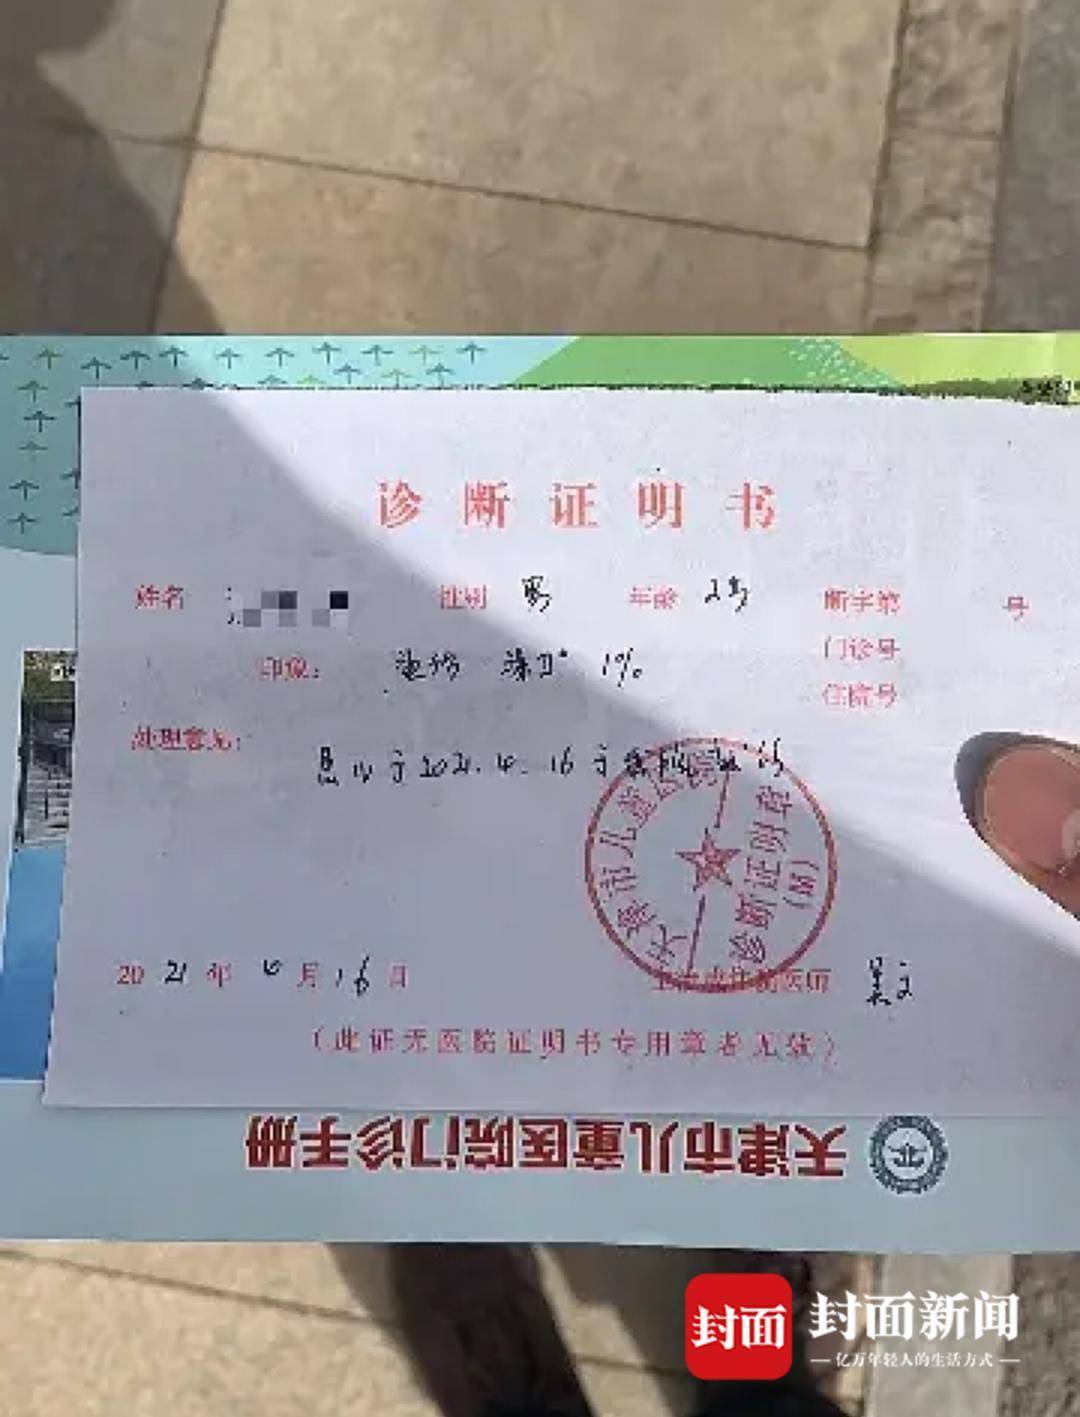 诊断证明书
姓名 性别 男 年龄 2岁 断字第 号
印象: 烫伤 深Ⅱ° 1% 门诊号
住院号
处理意见:
患儿于2021.4.16于
天津市儿童医院
诊断证明章
20 21 年 4 月 16 日 医师
(此证无医院证明书专用章者无效)
天津市儿童医院门诊手册
封面 封面新闻
亿万年轻人的生活方式